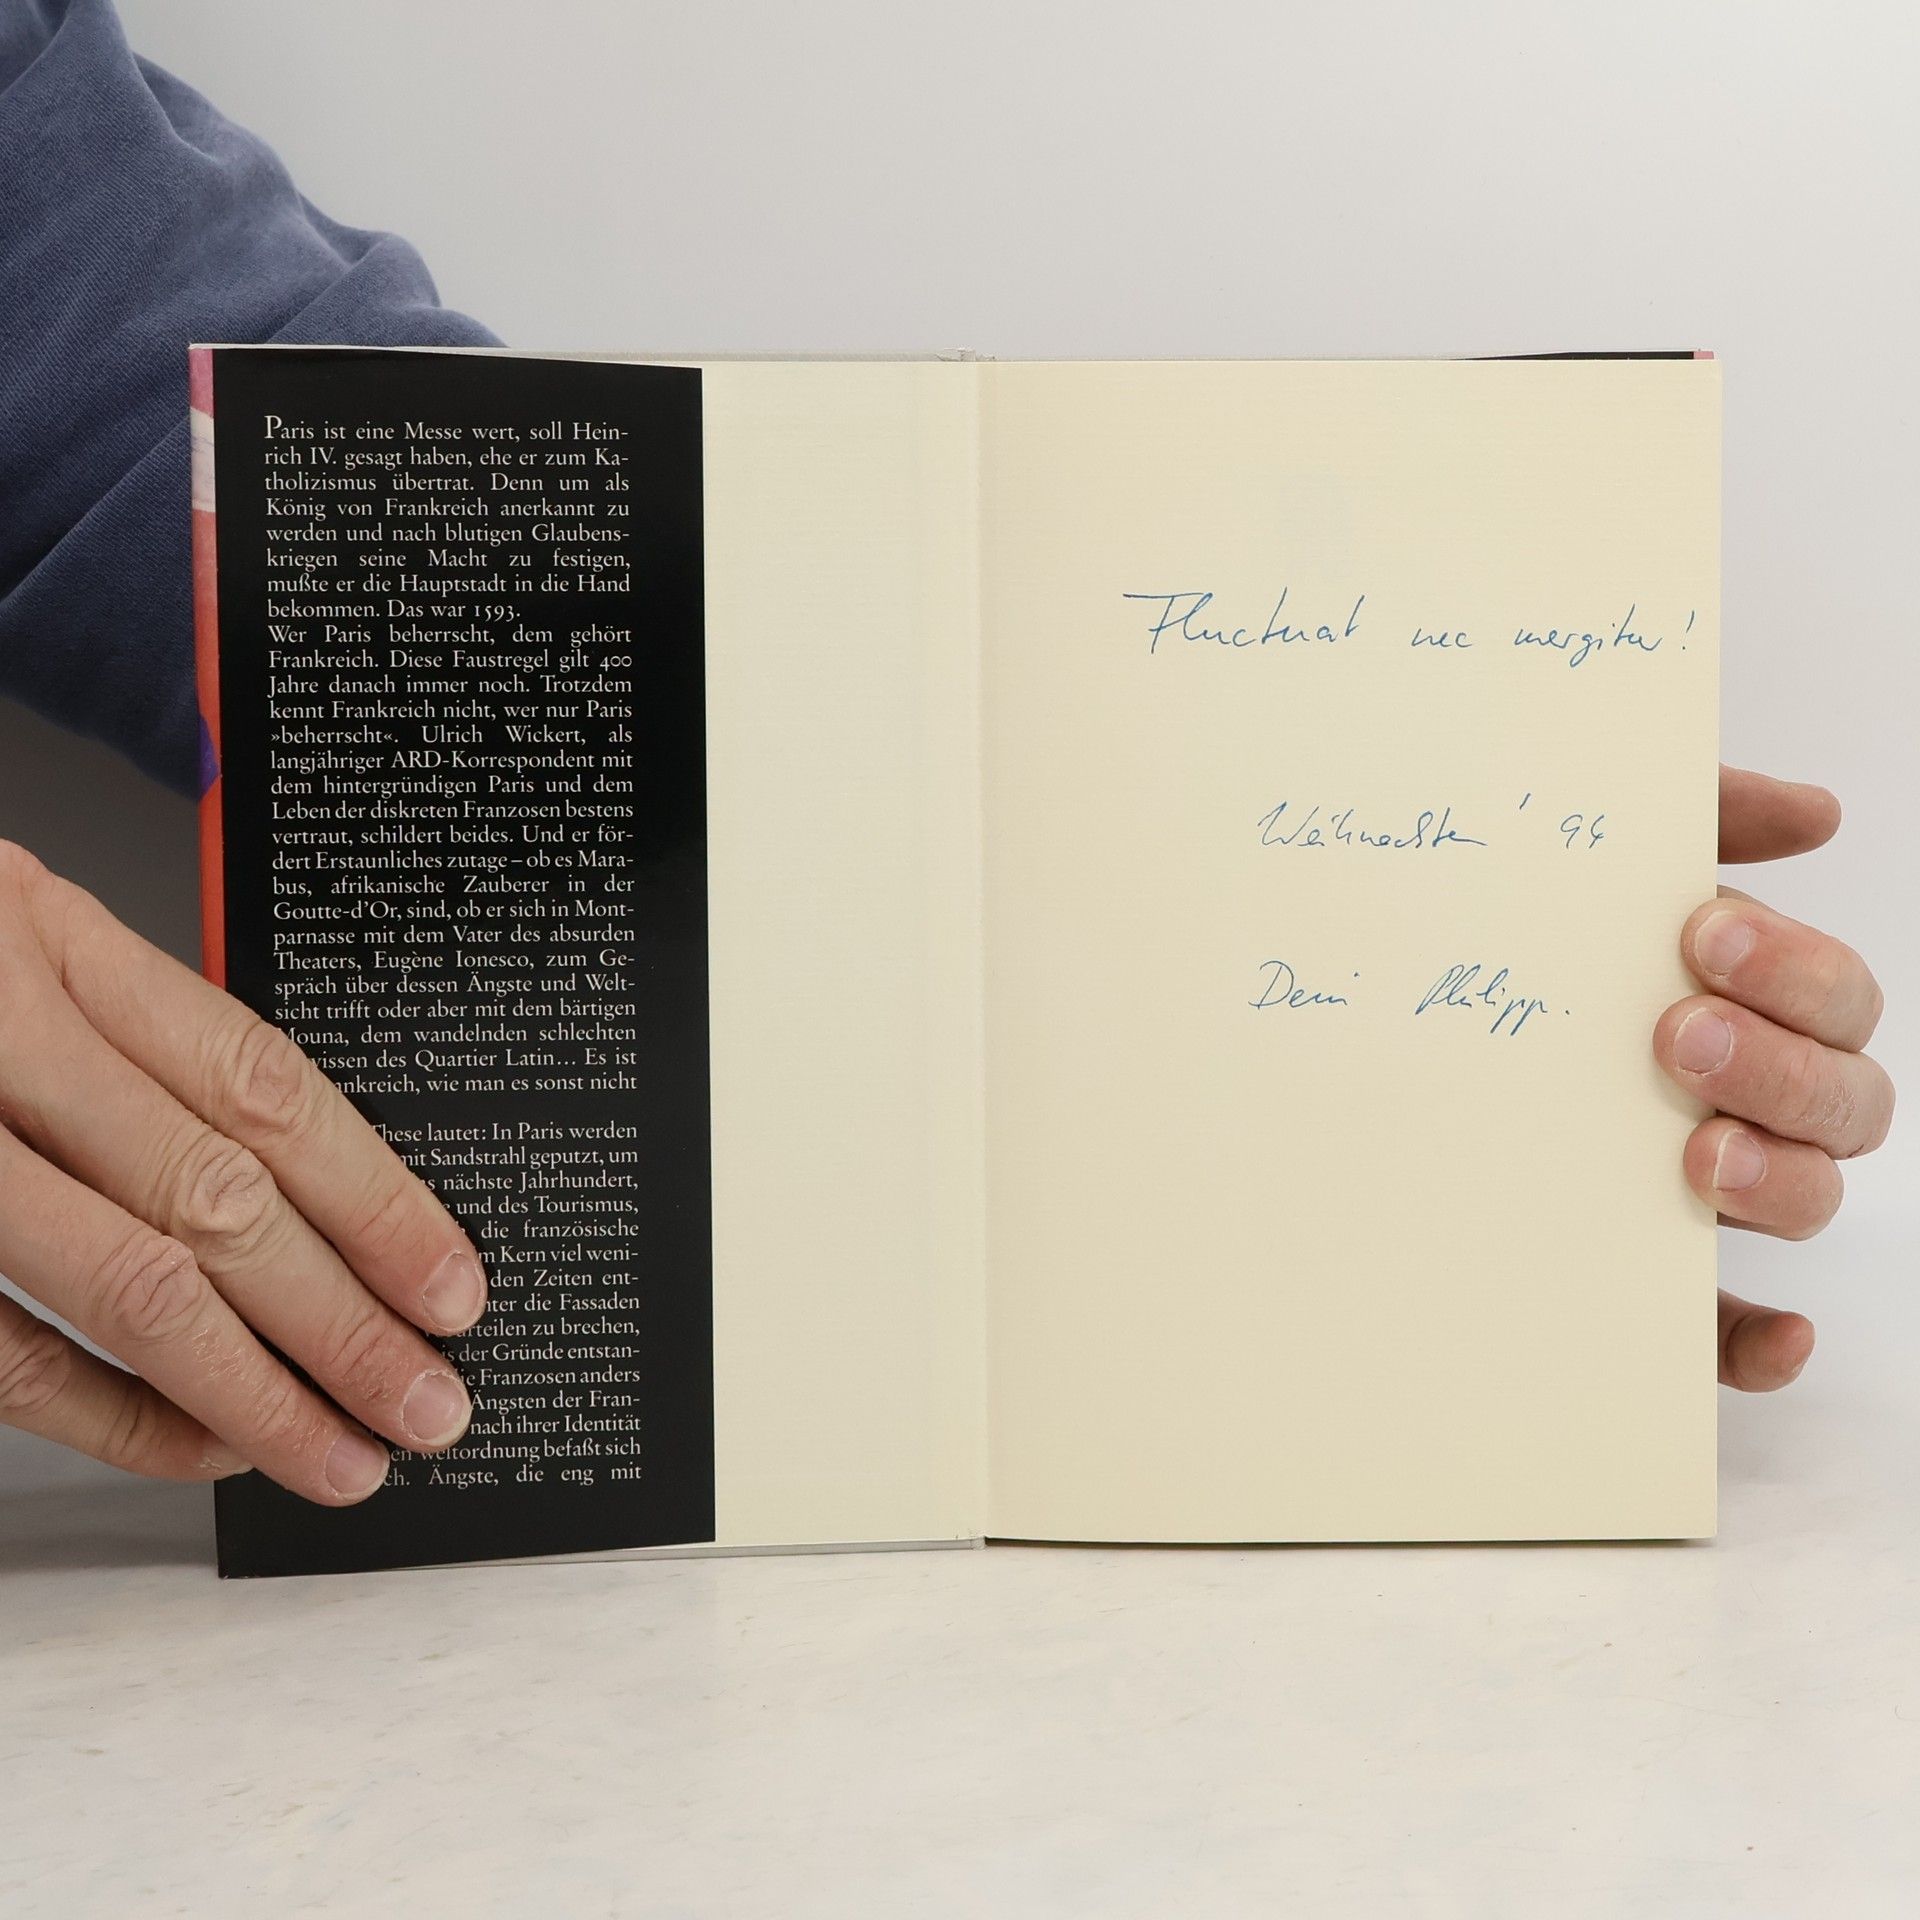 Paris ist eine Messe wert, soll Hein-
rich IV. gesagt haben, ehe er zum Ka-
tholizismus übertrat. Denn um als
König von Frankreich anerkannt zu
werden und nach blutigen Glaubens-
kriegen seine Macht zu festigen,
mußte er die Hauptstadt in die Hand
bekommen. Das war 1593.
Wer Paris beherrscht, dem gehört
Frankreich. Diese Faustregel gilt 400
Jahre danach immer noch. Trotzdem
kennt Frankreich nicht, wer nur Paris
»beherrscht«. Ulrich Wickert, als
langjähriger ARD-Korrespondent mit
dem hintergründigen Paris und dem
Leben der diskreten Franzosen bestens
vertraut, schildert beides. Und er för-
dert Erstaunliches zutage – ob es Mara-
bus, afrikanische Zauberer in der
Goutte-d'Or, sind, ob er sich in Mont-
parnasse mit dem Vater des absurden
Theaters, Eugène Ionesco, zum Ge-
spräch über dessen Ängste und Welt-
sicht trifft oder aber mit dem bärtigen
Mouna, dem wandelnden schlechten
wissen des Quartier Latin... Es ist
ankreich, wie man es sonst nicht
These lautet: In Paris werden
mit Sandstrahl geputzt, um
nächste Jahrhundert,
und des Tourismus,
die französische
m Kern viel weni-
den Zeiten ent-
nter die Fassaden
urteilen zu brechen,
is der Gründe entstan-
ie Franzosen anders
Ängsten der Fran-
nach ihrer Identität
en Weltordnung befaßt sich
ch. Ängste, die eng mit
Fluctuat nec mergitur!
Weihnachten '94
Dein Philipp.